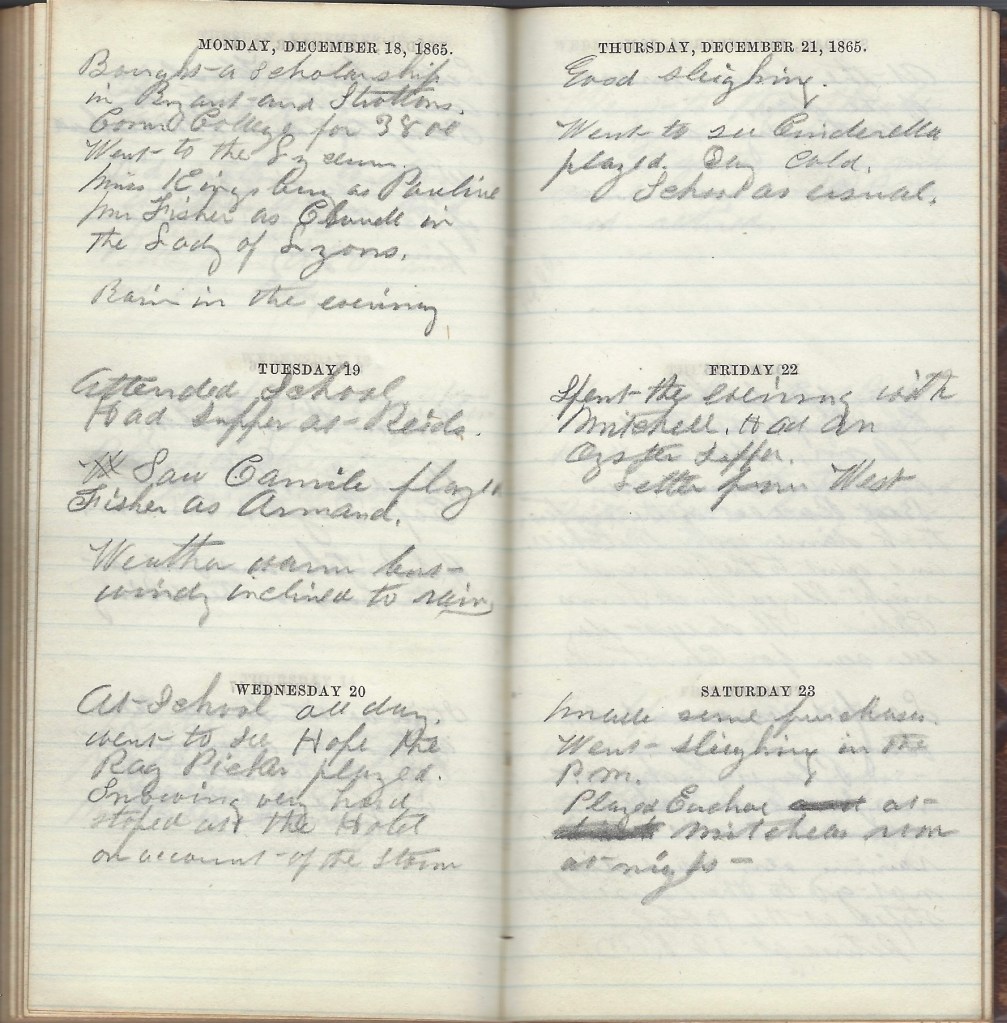 MONDAY, DECEMBER 18, 1865.
Bought a Scholarship
in Bryant and Strattons.
Coml College for 38 00
Went to the Lyceum.
Miss Kingsbury as Pauline
Mr Fisher as Claude in
the Lady of Lyons.
Rain in the evening
TUESDAY 19
Attended School
Had Supper at Reids.
Saw Camile played
Fisher as Armand.
Weather warm but
windy inclined to rain
WEDNESDAY 20
At School all day.
went to see Hope the
Rag Picker played.
Snowing very hard
stoped at the Hotel
on account of the storm
THURSDAY, DECEMBER 21, 1865.
Good sleighing.
Went to see Cinderella
played. Day Cold.
School as usual.
FRIDAY 22
Spent the evening with
Mitchell. Had an
Oyster Supper.
Letter from West
SATURDAY 23
Made some purchases.
Went sleighing in the
P.M.
Played Euchre at
Mitchells room
at night